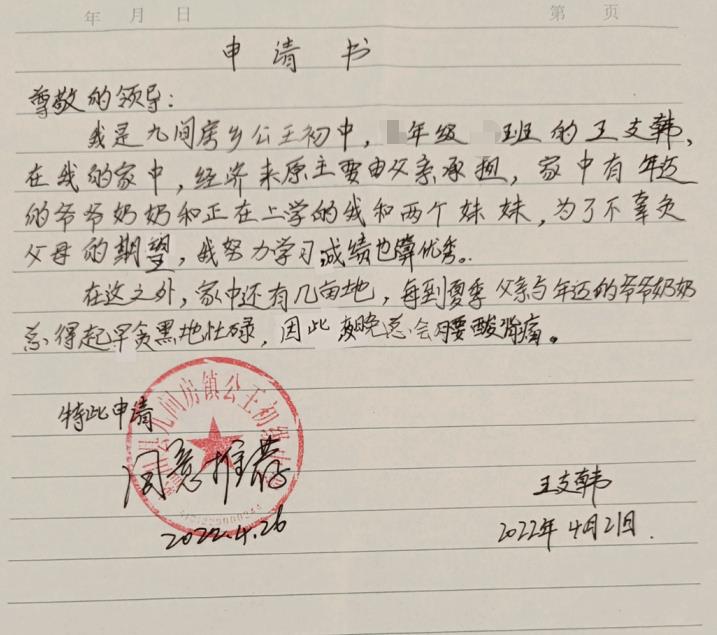 年 月 日 第 页
申请书
尊敬的领导：
我是九间房乡公王初中，年级 班的王支韩，
在我的家中，经济来原主要由父亲承担，家中有年迈
的爷爷奶奶和正在上学的我和两个妹妹，为了不辜负
父母的期望，我努力学习成绩也算优秀。
在这之外，家中还有几亩地，每到夏季父亲与年迈的爷爷奶奶
总得起早贪黑地忙碌，因此夜晚总会腰酸背痛。
特此申请
九间房镇公王初级
同意推荐
2022.4.26
王支韩
2022年4月21日.